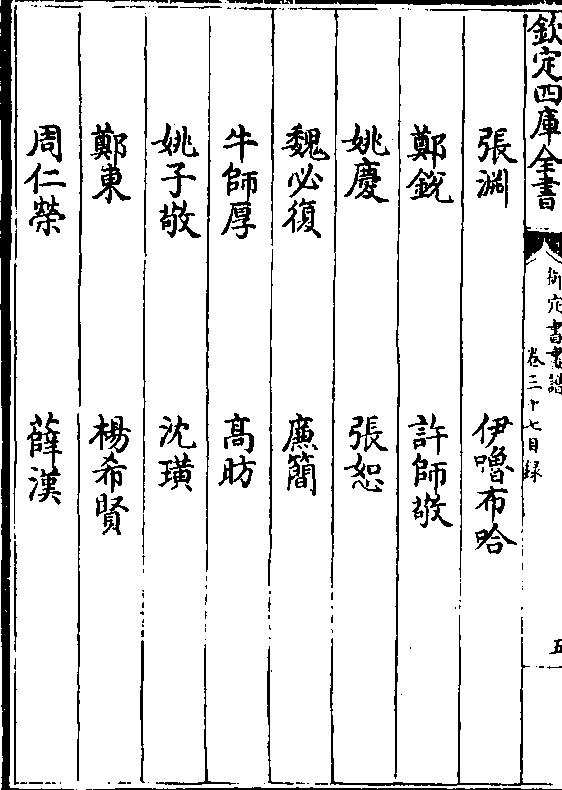 欽定四庫全書
御定書畫譜
卷三十七目録
五
張淵
伊嚕布哈
鄭銳
許師敬
姚慶
張恕
魏必復
廉簡
牛師厚
高昉
姚子敬
沈璜
鄭東
楊希賢
周仁榮
薛漢